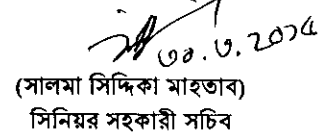 ৩০.৩.২০১৫
(সালমা সিদ্দিকা মাহতাব)
সিনিয়র সহকারী সচিব